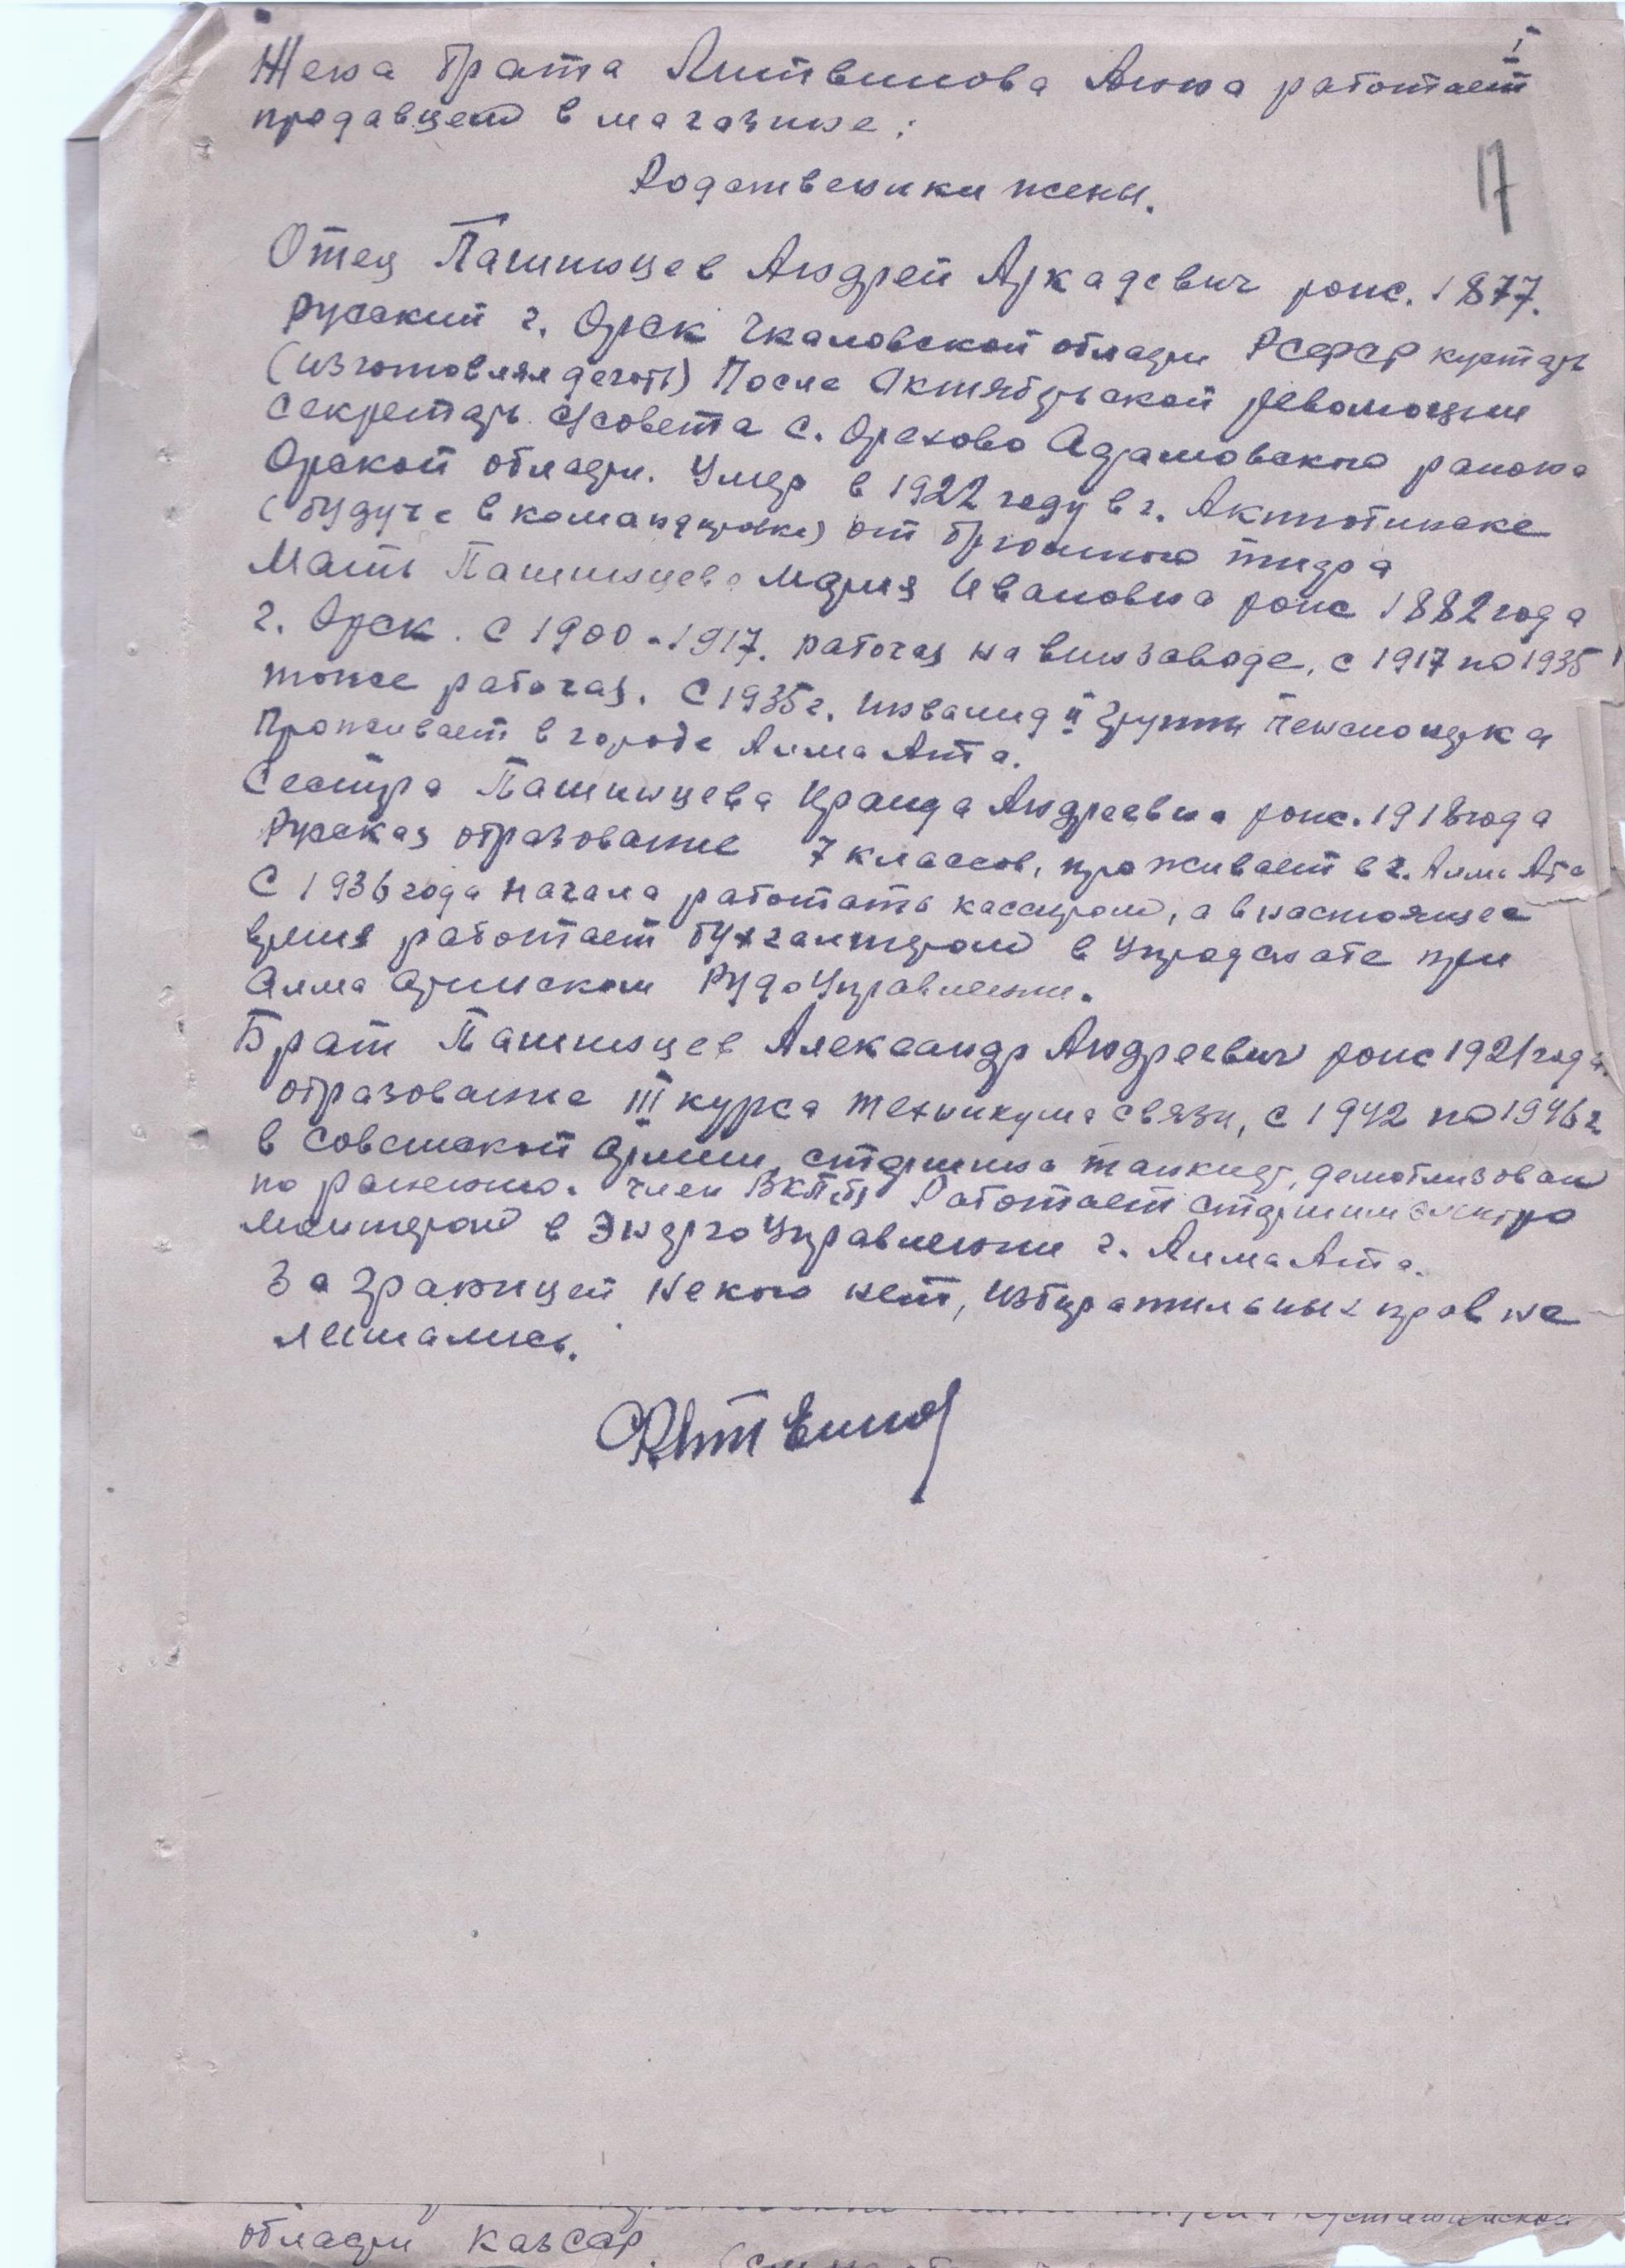 Жена брата Литвинова Анна работает
продавцем в магазине.
17
Родственики жены.
Отец Пашинцев Андрей Аркадевич рожс. 1877.
русский г. Орск Чкаловской области РСФСР кустарь
(изготовлял деготь) После Октябрьской революции
секретарь с/совета с. Орехово Адамовского раиона
Орской области. Умер в 1922 году в г. Актюбинске
(будуче в командировке) от брюшного тифа
Мать Пашинцева Мария Ивановна рожс 1882 года
г. Орск. С 1900-1917. рабочая на винзаводе, с 1917 по 1935
тоже рабочая. С 1935 г. инвалид II групы пенсионерка
Проживает в городе Алма Ата.
Сестра Пашинцева Ираида Андреевна рожс. 1918 года
Руская образование 7 классов, проживает в г. Алма Ата
С 1936 года начала работать кассиром, а в настоящее
время работает бухгалтером в Упродснабе при
Алма Атинском РудоУправлении.
Брат Пашинцев Александр Андреевич рожс 1921 года.
образование III курса техникума связи, с 1942 по 1946 г
в Советской Армии, старшина танкист, демобилизован
по ранению. член ВКП(б) Работает старшим электро
монтером в ЭнергоУправлении г. Алма Ата.
За границей некого нет, избирательных прав не
лишались.
Литвинов
области КазССР